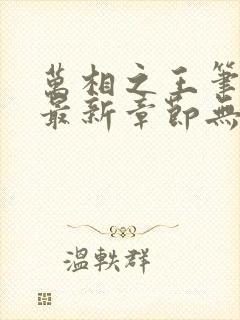 萬相之王筆
最新章節無
溫軼群